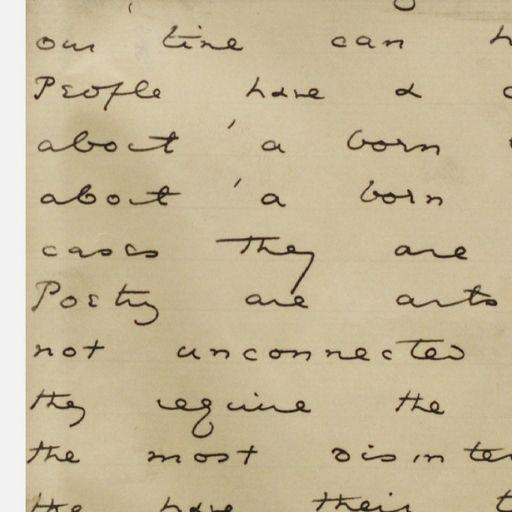 our time can
People have a
about 'a born
about 'a born
cases they are
Poetry are arts
not unconnected
they require the
the most disinter
the have their